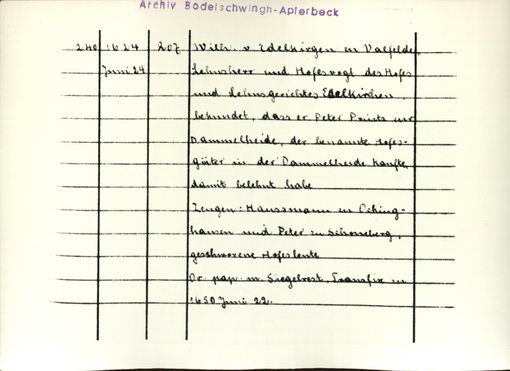 Archiv Bodelschwingh-Aplerbeck
240 1624 207 Wilh. v. Edelkirgen in Valfelde,
Juni 24 Lehnsherr und Hofesvogt des Hofes
und Lehnsgerichtes Edelkirchen,
bekundet, dass er Peter Prints zur
Dammelheide, der benannte Hofes-
güter in der Dammelheide kaufte,
damit belehnt habe
Zeugen: Hanssmann zu Öking-
hausen und Peter zu Schöneberg,
geschworene Hofesleute
Or. pap. m. Siegelrest, Transfix zu
1650 Juni 22.